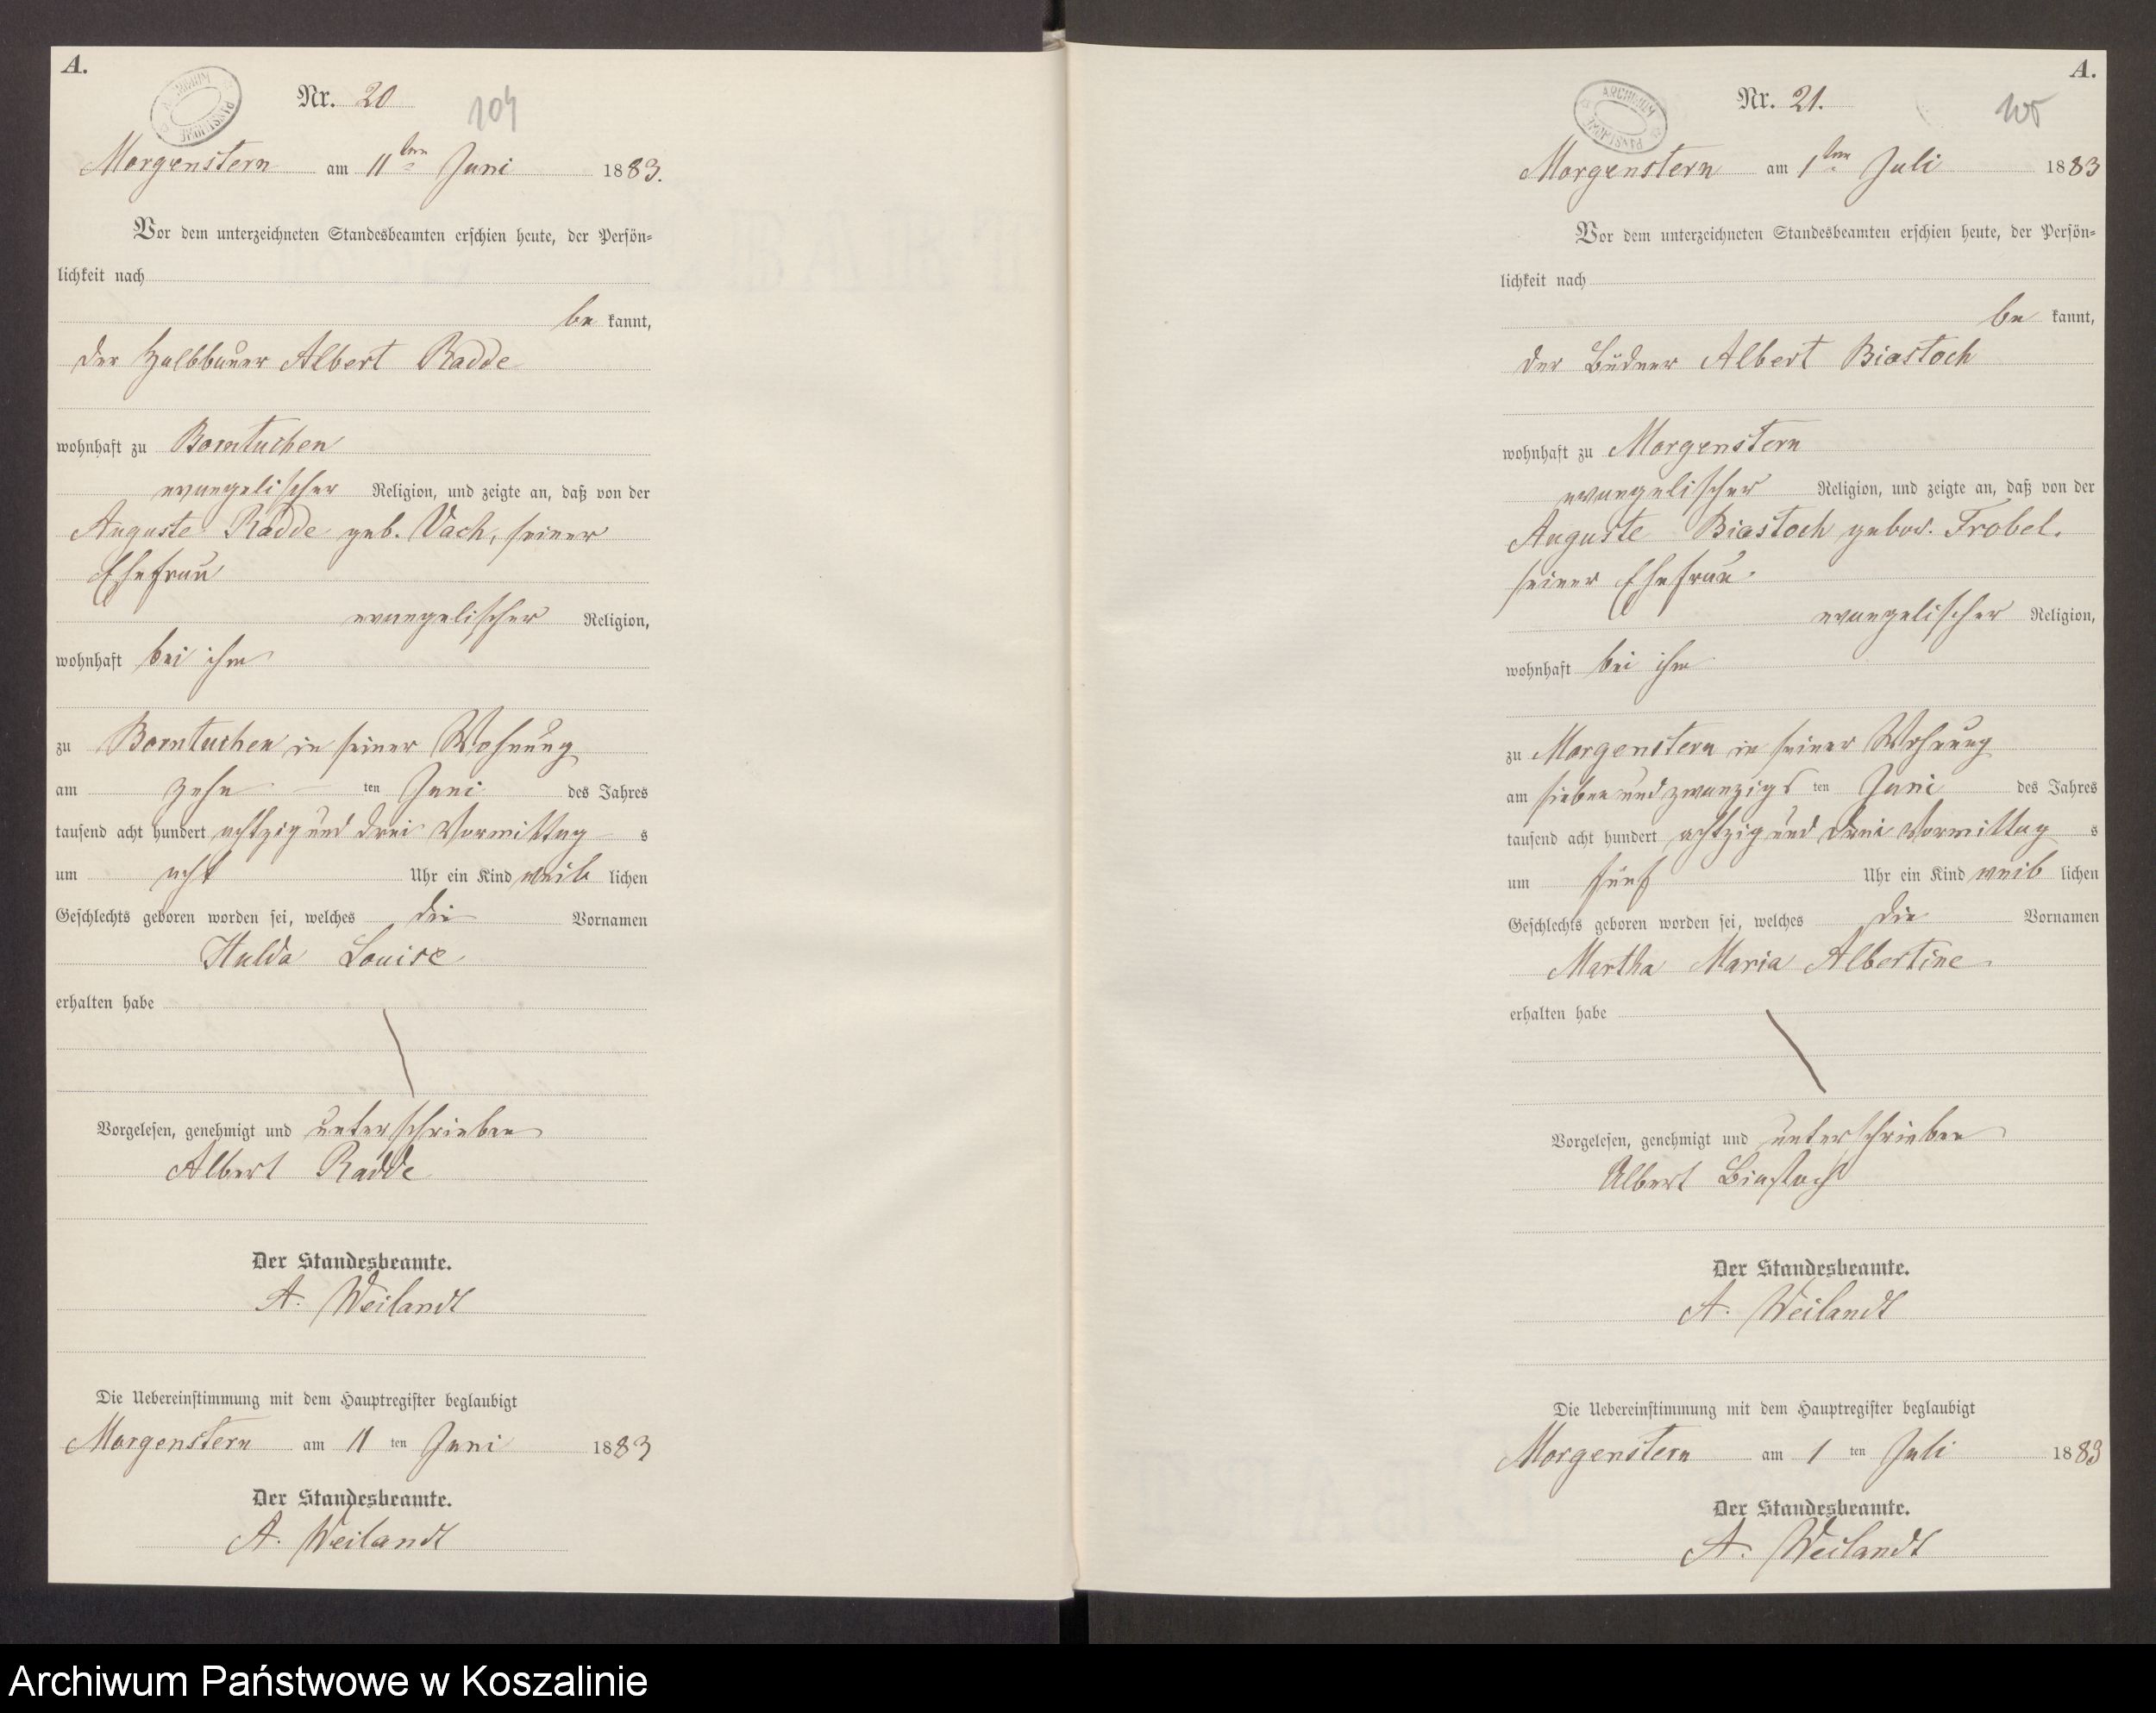 A.
ARCHIWUM PAŃSTWOWE
Nr. 20
104
Morgenstern am 11ten Juni 1883.
Vor dem unterzeichneten Standesbeamten erschien heute, der Persön=
lichkeit nach
be kannt,
der Halbbauer Albert Radde
wohnhaft zu Borntuchen
evangelischer Religion, und zeigte an, daß von der
Auguste Radde geb. Vach, seiner
Ehefrau
evangelischer Religion,
wohnhaft bei ihm
zu Borntuchen in seiner Wohnung
am zehn ten Juni des Jahres
tausend acht hundert achtzig und drei Vormittag s
um acht Uhr ein Kind weib lichen
Geschlechts geboren worden sei, welches die Vornamen
Hulda Louise
erhalten habe
Vorgelesen, genehmigt und unterschrieben
Albert Radde
Der Standesbeamte.
A. Weilandt
Die Uebereinstimmung mit dem Hauptregister beglaubigt
Morgenstern am 11 ten Juni 1883
Der Standesbeamte.
A. Weilandt
A.
ARCHIWUM PAŃSTWOWE
Nr. 21.
105
Morgenstern am 1ten Juli 1883
Vor dem unterzeichneten Standesbeamten erschien heute, der Persön=
lichkeit nach
be kannt,
der Büdner Albert Biastoch
wohnhaft zu Morgenstern
evangelischer Religion, und zeigte an, daß von der
Auguste Biastoch gebor. Frobel.
seiner Ehefrau.
evangelischer Religion,
wohnhaft bei ihm
zu Morgenstern in seiner Wohnung
am sieben und zwanzigs ten Juni des Jahres
tausend acht hundert achtzig und drei Vormittag s
um fünf Uhr ein Kind weib lichen
Geschlechts geboren worden sei, welches die Vornamen
Martha Maria Albertine
erhalten habe
Vorgelesen, genehmigt und unterschrieben
Albert Biastoch
Der Standesbeamte.
A. Weilandt
Die Uebereinstimmung mit dem Hauptregister beglaubigt
Morgenstern am 1 ten Juli 1883
Der Standesbeamte.
A. Weilandt
Archiwum Państwowe w Koszalinie